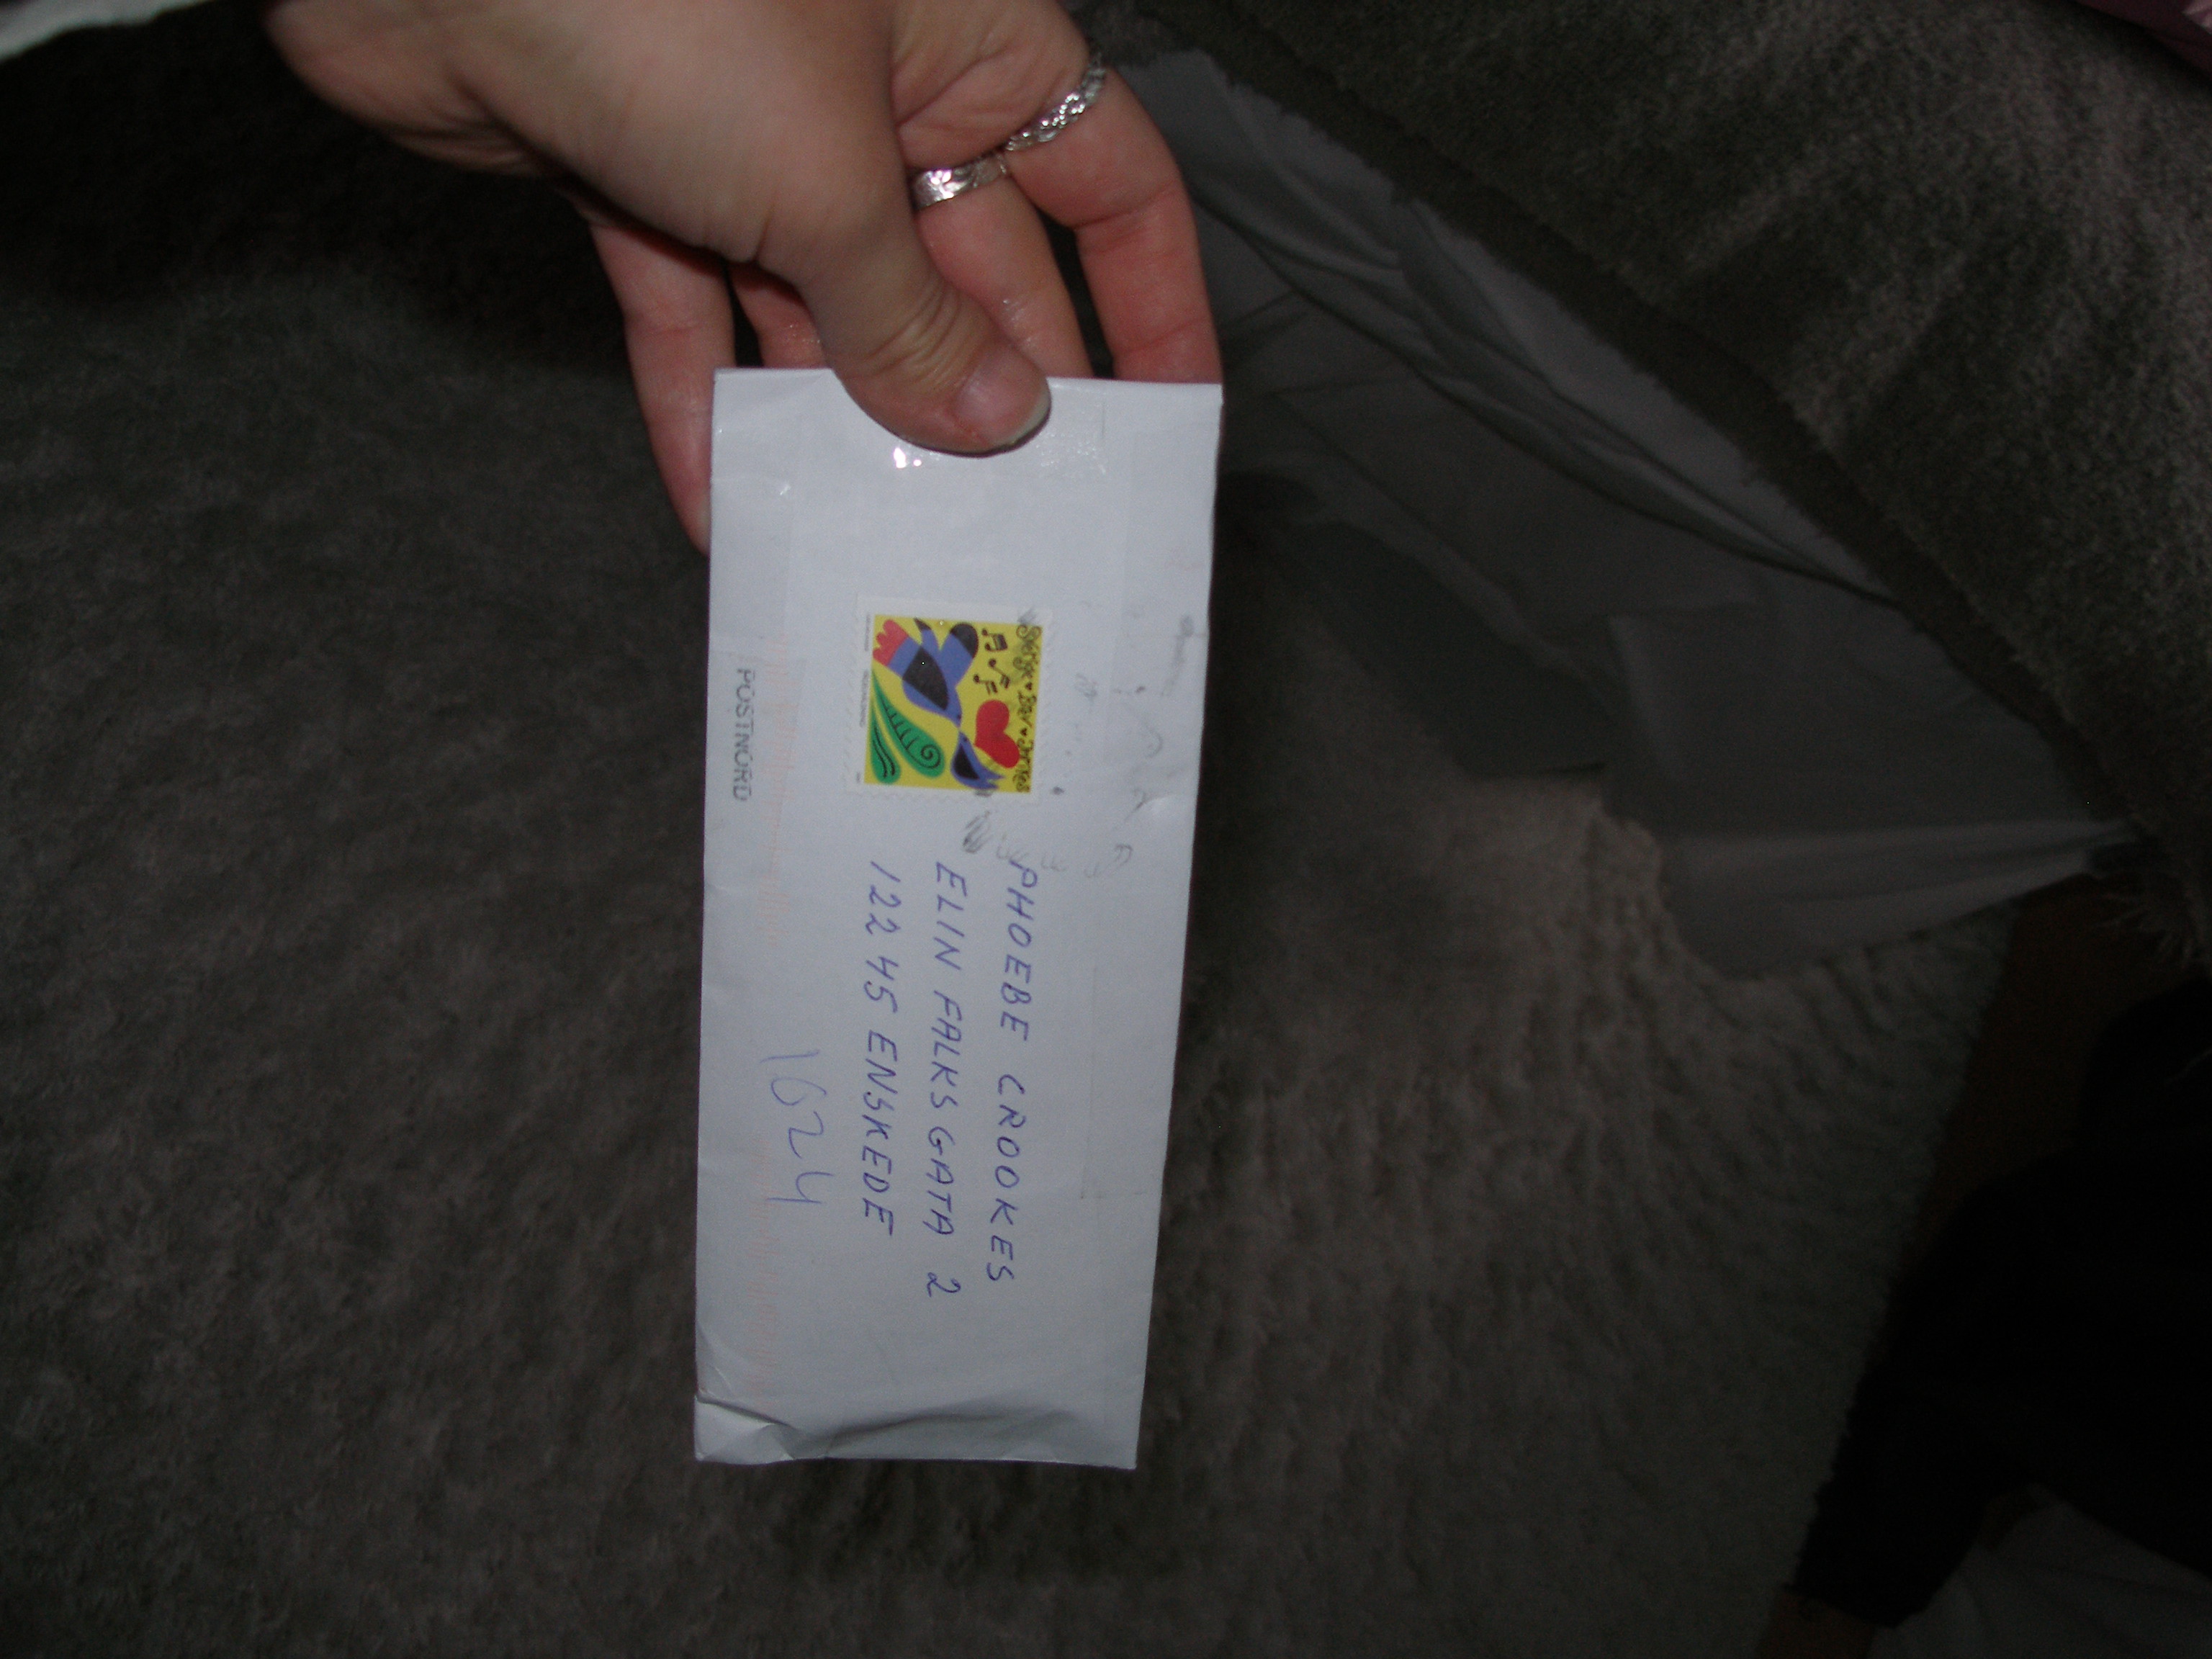 Sverige ♥ Brev ♥ Inrikes
PHOEBE CROOKES
ELIN FALKS GATA 2
122 45 ENSKEDE
1624
POSTNORD